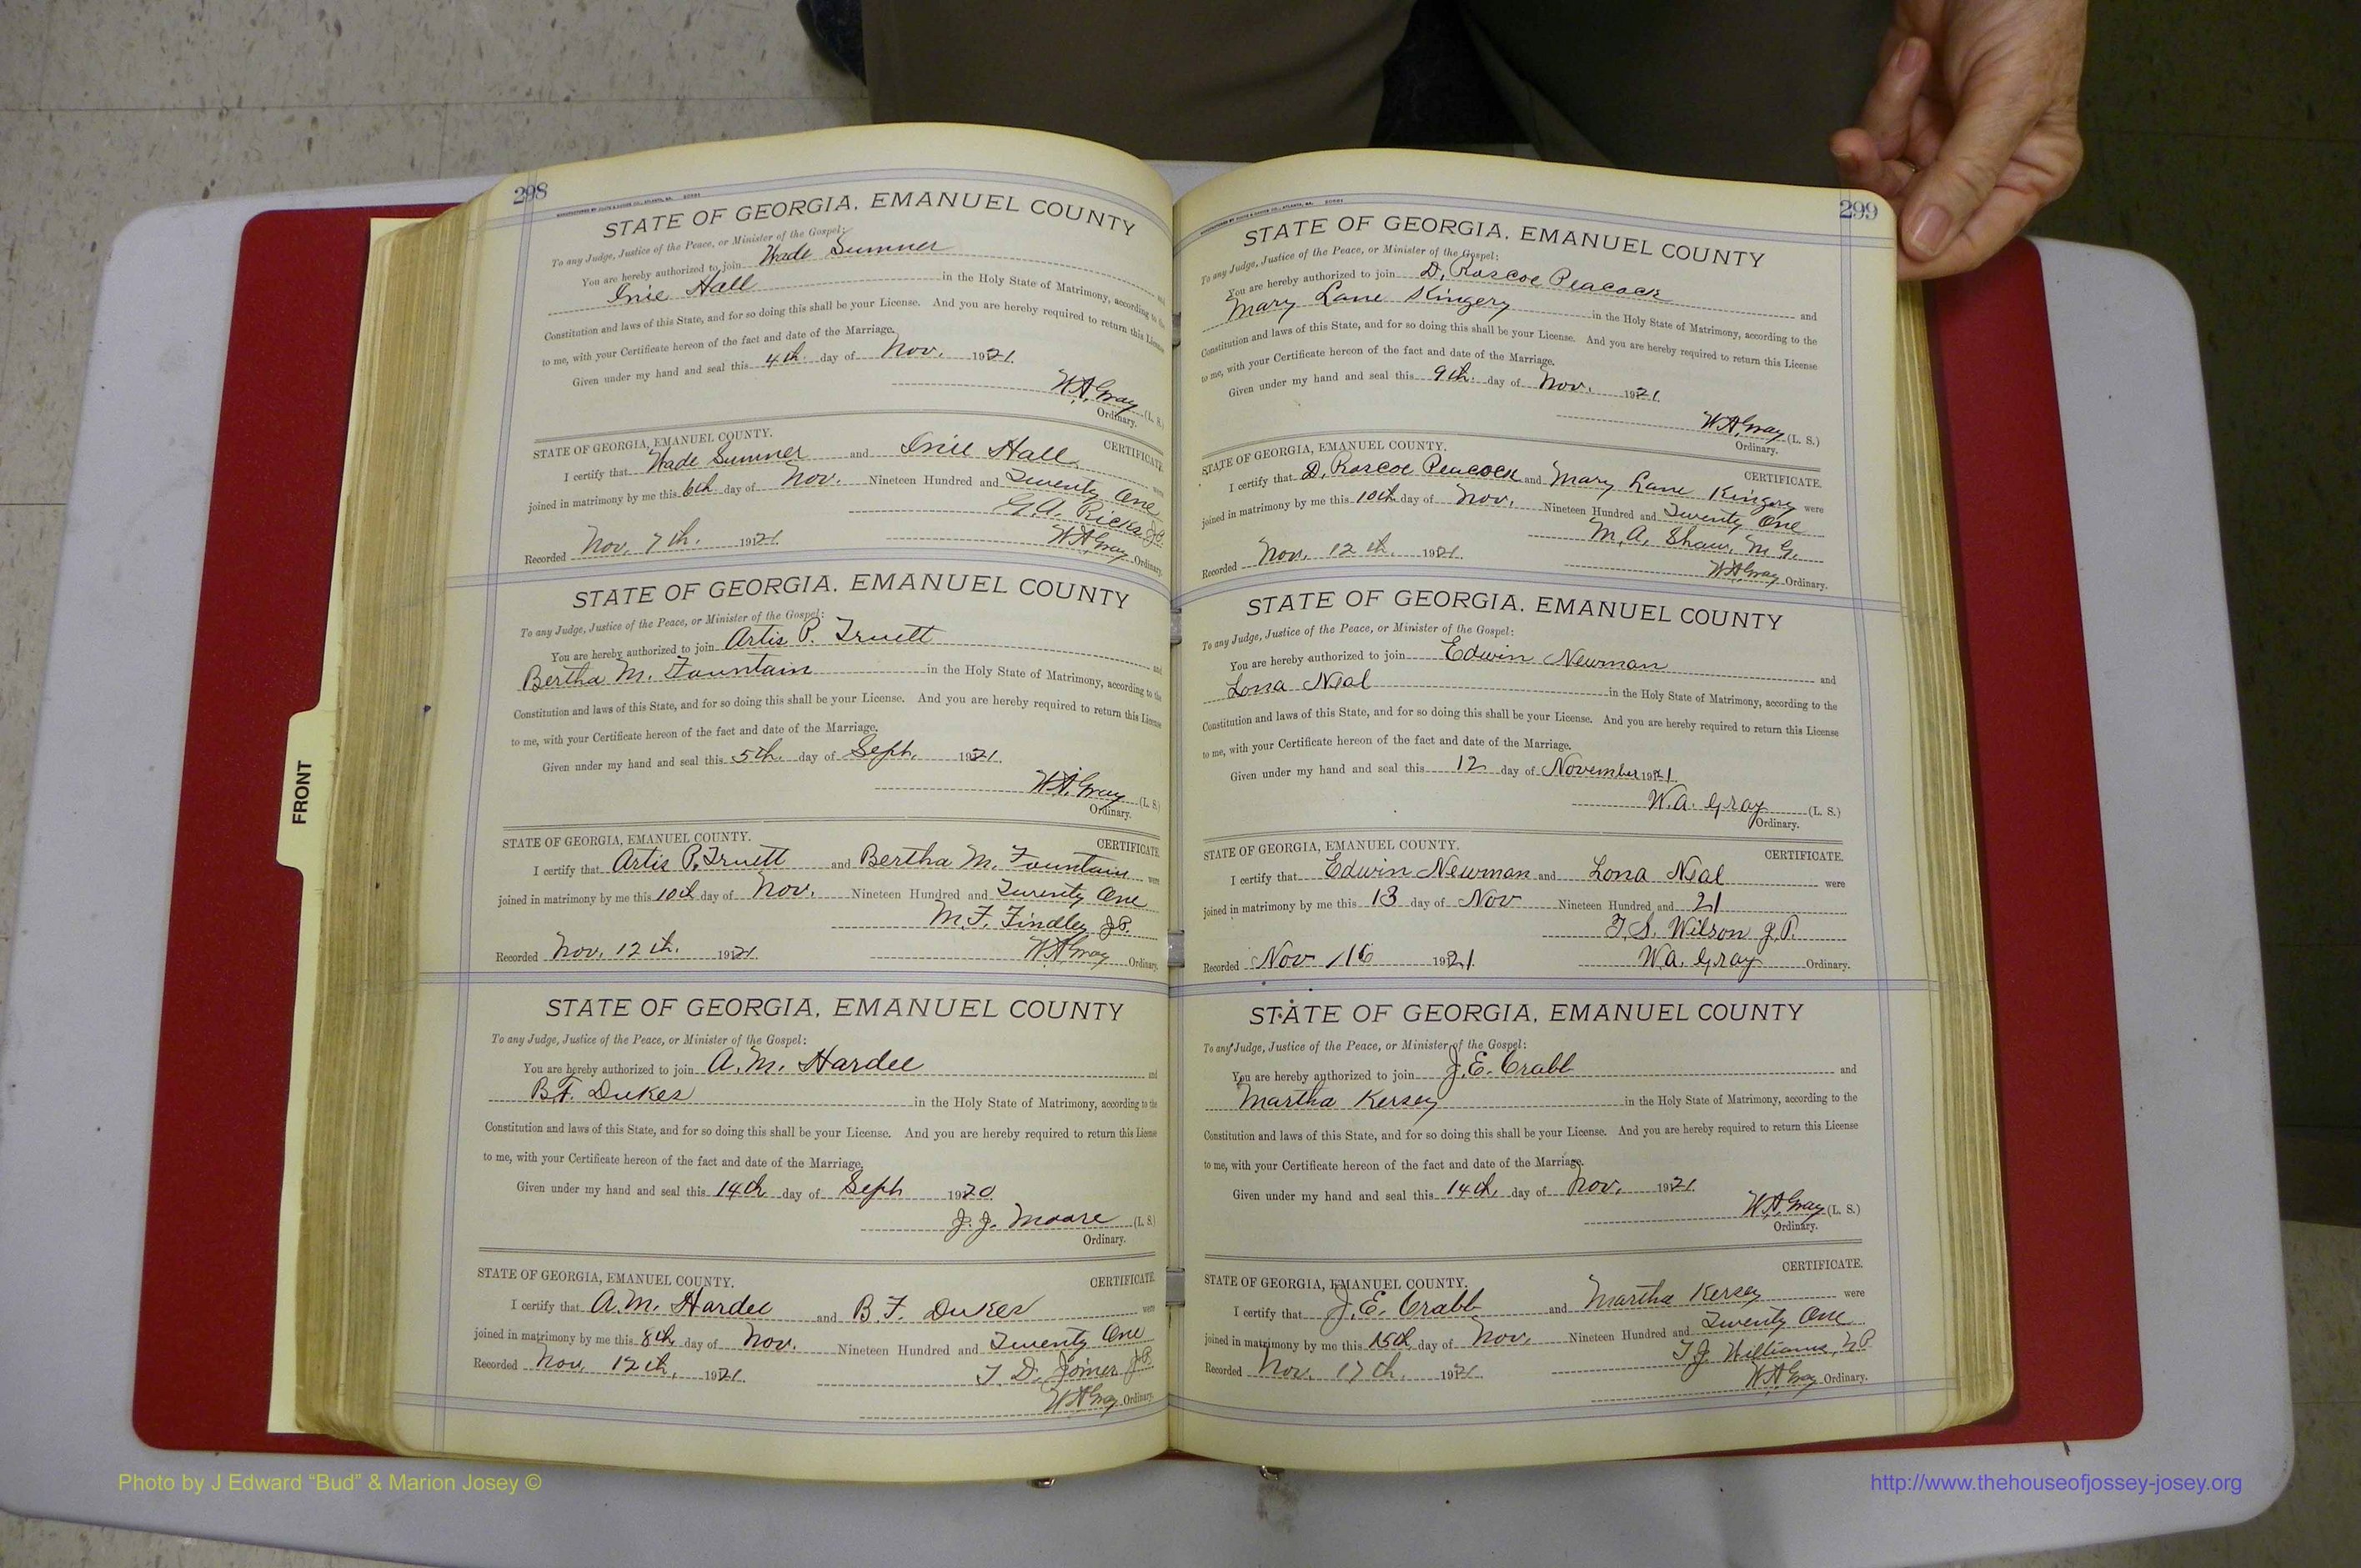 298
STATE OF GEORGIA, EMANUEL COUNTY
To any Judge, Justice of the Peace, or Minister of the Gospel:
You are hereby authorized to join Wade Sumner and
Inie Hall in the Holy State of Matrimony, according to the
Constitution and laws of this State, and for so doing this shall be your License. And you are hereby required to return this License
to me, with your Certificate hereon of the fact and date of the Marriage.
Given under my hand and seal this 4th. day of Nov. 1921.
W.A. Gray (L. S.)
Ordinary.
STATE OF GEORGIA, EMANUEL COUNTY. CERTIFICATE.
I certify that Wade Sumner and Hall were
joined in matrimony by me this 6th day of Nov. Nineteen Hundred and Twenty One
G.A. Ricks J.P.
Recorded Nov. 7th. 1921. W.A. Gray Ordinary.
STATE OF GEORGIA, EMANUEL COUNTY
To any Judge, Justice of the Peace, or Minister of the Gospel:
You are hereby authorized to join Artis P. Truett and
Bertha M. Fountain in the Holy State of Matrimony, according to the
Constitution and laws of this State, and for so doing this shall be your License. And you are hereby required to return this License
to me, with your Certificate hereon of the fact and date of the Marriage.
Given under my hand and seal this 5th. day of Seph. 1921.
W.A. Gray (L. S.)
Ordinary.
STATE OF GEORGIA, EMANUEL COUNTY. CERTIFICATE.
I certify that Artis P. Truett and Bertha M. Fountain were
joined in matrimony by me this 10th day of Nov. Nineteen Hundred and Twenty One
M.F. Findley J.P.
Recorded Nov. 12th. 1921. W.A. Gray Ordinary.
STATE OF GEORGIA, EMANUEL COUNTY
To any Judge, Justice of the Peace, or Minister of the Gospel:
You are hereby authorized to join A.M. Hardee and
B.F. Dukes in the Holy State of Matrimony, according to the
Constitution and laws of this State, and for so doing this shall be your License. And you are hereby required to return this License
to me, with your Certificate hereon of the fact and date of the Marriage.
Given under my hand and seal this 14th day of Seph 1920.
J.J. Moore (L. S.)
Ordinary.
STATE OF GEORGIA, EMANUEL COUNTY. CERTIFICATE.
I certify that A.M. Hardee and B.F. Dukes were
joined in matrimony by me this 8th day of Nov. Nineteen Hundred and Twenty One
Recorded Nov. 12th, 1921. T.D. Joiner J.P.
W.A. Gray Ordinary.
299
STATE OF GEORGIA, EMANUEL COUNTY
To any Judge, Justice of the Peace, or Minister of the Gospel:
You are hereby authorized to join D. Roscoe Peacock and
Mary Lane Kingery in the Holy State of Matrimony, according to the
Constitution and laws of this State, and for so doing this shall be your License. And you are hereby required to return this License
to me, with your Certificate hereon of the fact and date of the Marriage.
Given under my hand and seal this 9th. day of Nov. 1921.
W.A. Gray (L. S.)
Ordinary.
STATE OF GEORGIA, EMANUEL COUNTY. CERTIFICATE.
I certify that D. Roscoe Peacock and Mary Lane Kingery were
joined in matrimony by me this 10th day of Nov. Nineteen Hundred and Twenty One
M.A. Shaw, M.G.
Recorded Nov. 12th. 1921. W.A. Gray Ordinary.
STATE OF GEORGIA, EMANUEL COUNTY
To any Judge, Justice of the Peace, or Minister of the Gospel:
You are hereby authorized to join Edwin Newman and
Lona Neal in the Holy State of Matrimony, according to the
Constitution and laws of this State, and for so doing this shall be your License. And you are hereby required to return this License
to me, with your Certificate hereon of the fact and date of the Marriage.
Given under my hand and seal this 12 day of November 1921.
W.A. Gray (L. S.)
Ordinary.
STATE OF GEORGIA, EMANUEL COUNTY. CERTIFICATE.
I certify that Edwin Newman and Lona Neal were
joined in matrimony by me this 13 day of Nov Nineteen Hundred and 21
F.S. Wilson J.P.
Recorded Nov 16 1921. W.A. Gray Ordinary.
STATE OF GEORGIA, EMANUEL COUNTY
To any Judge, Justice of the Peace, or Minister of the Gospel:
You are hereby authorized to join J.E. Crabb and
Martha Kersey in the Holy State of Matrimony, according to the
Constitution and laws of this State, and for so doing this shall be your License. And you are hereby required to return this License
to me, with your Certificate hereon of the fact and date of the Marriage.
Given under my hand and seal this 14th, day of Nov. 1921.
W.A. Gray (L. S.)
Ordinary.
STATE OF GEORGIA, EMANUEL COUNTY. CERTIFICATE.
I certify that J.E. Crabb and Martha Kersey were
joined in matrimony by me this 15th day of Nov. Nineteen Hundred and Twenty One
Recorded Nov. 17th. 1921. T.J. Williams,
W.A. Gray Ordinary.
FRONT
Photo by J Edward “Bud” & Marion Josey ©
http://www.thehouseofjossey-josey.org